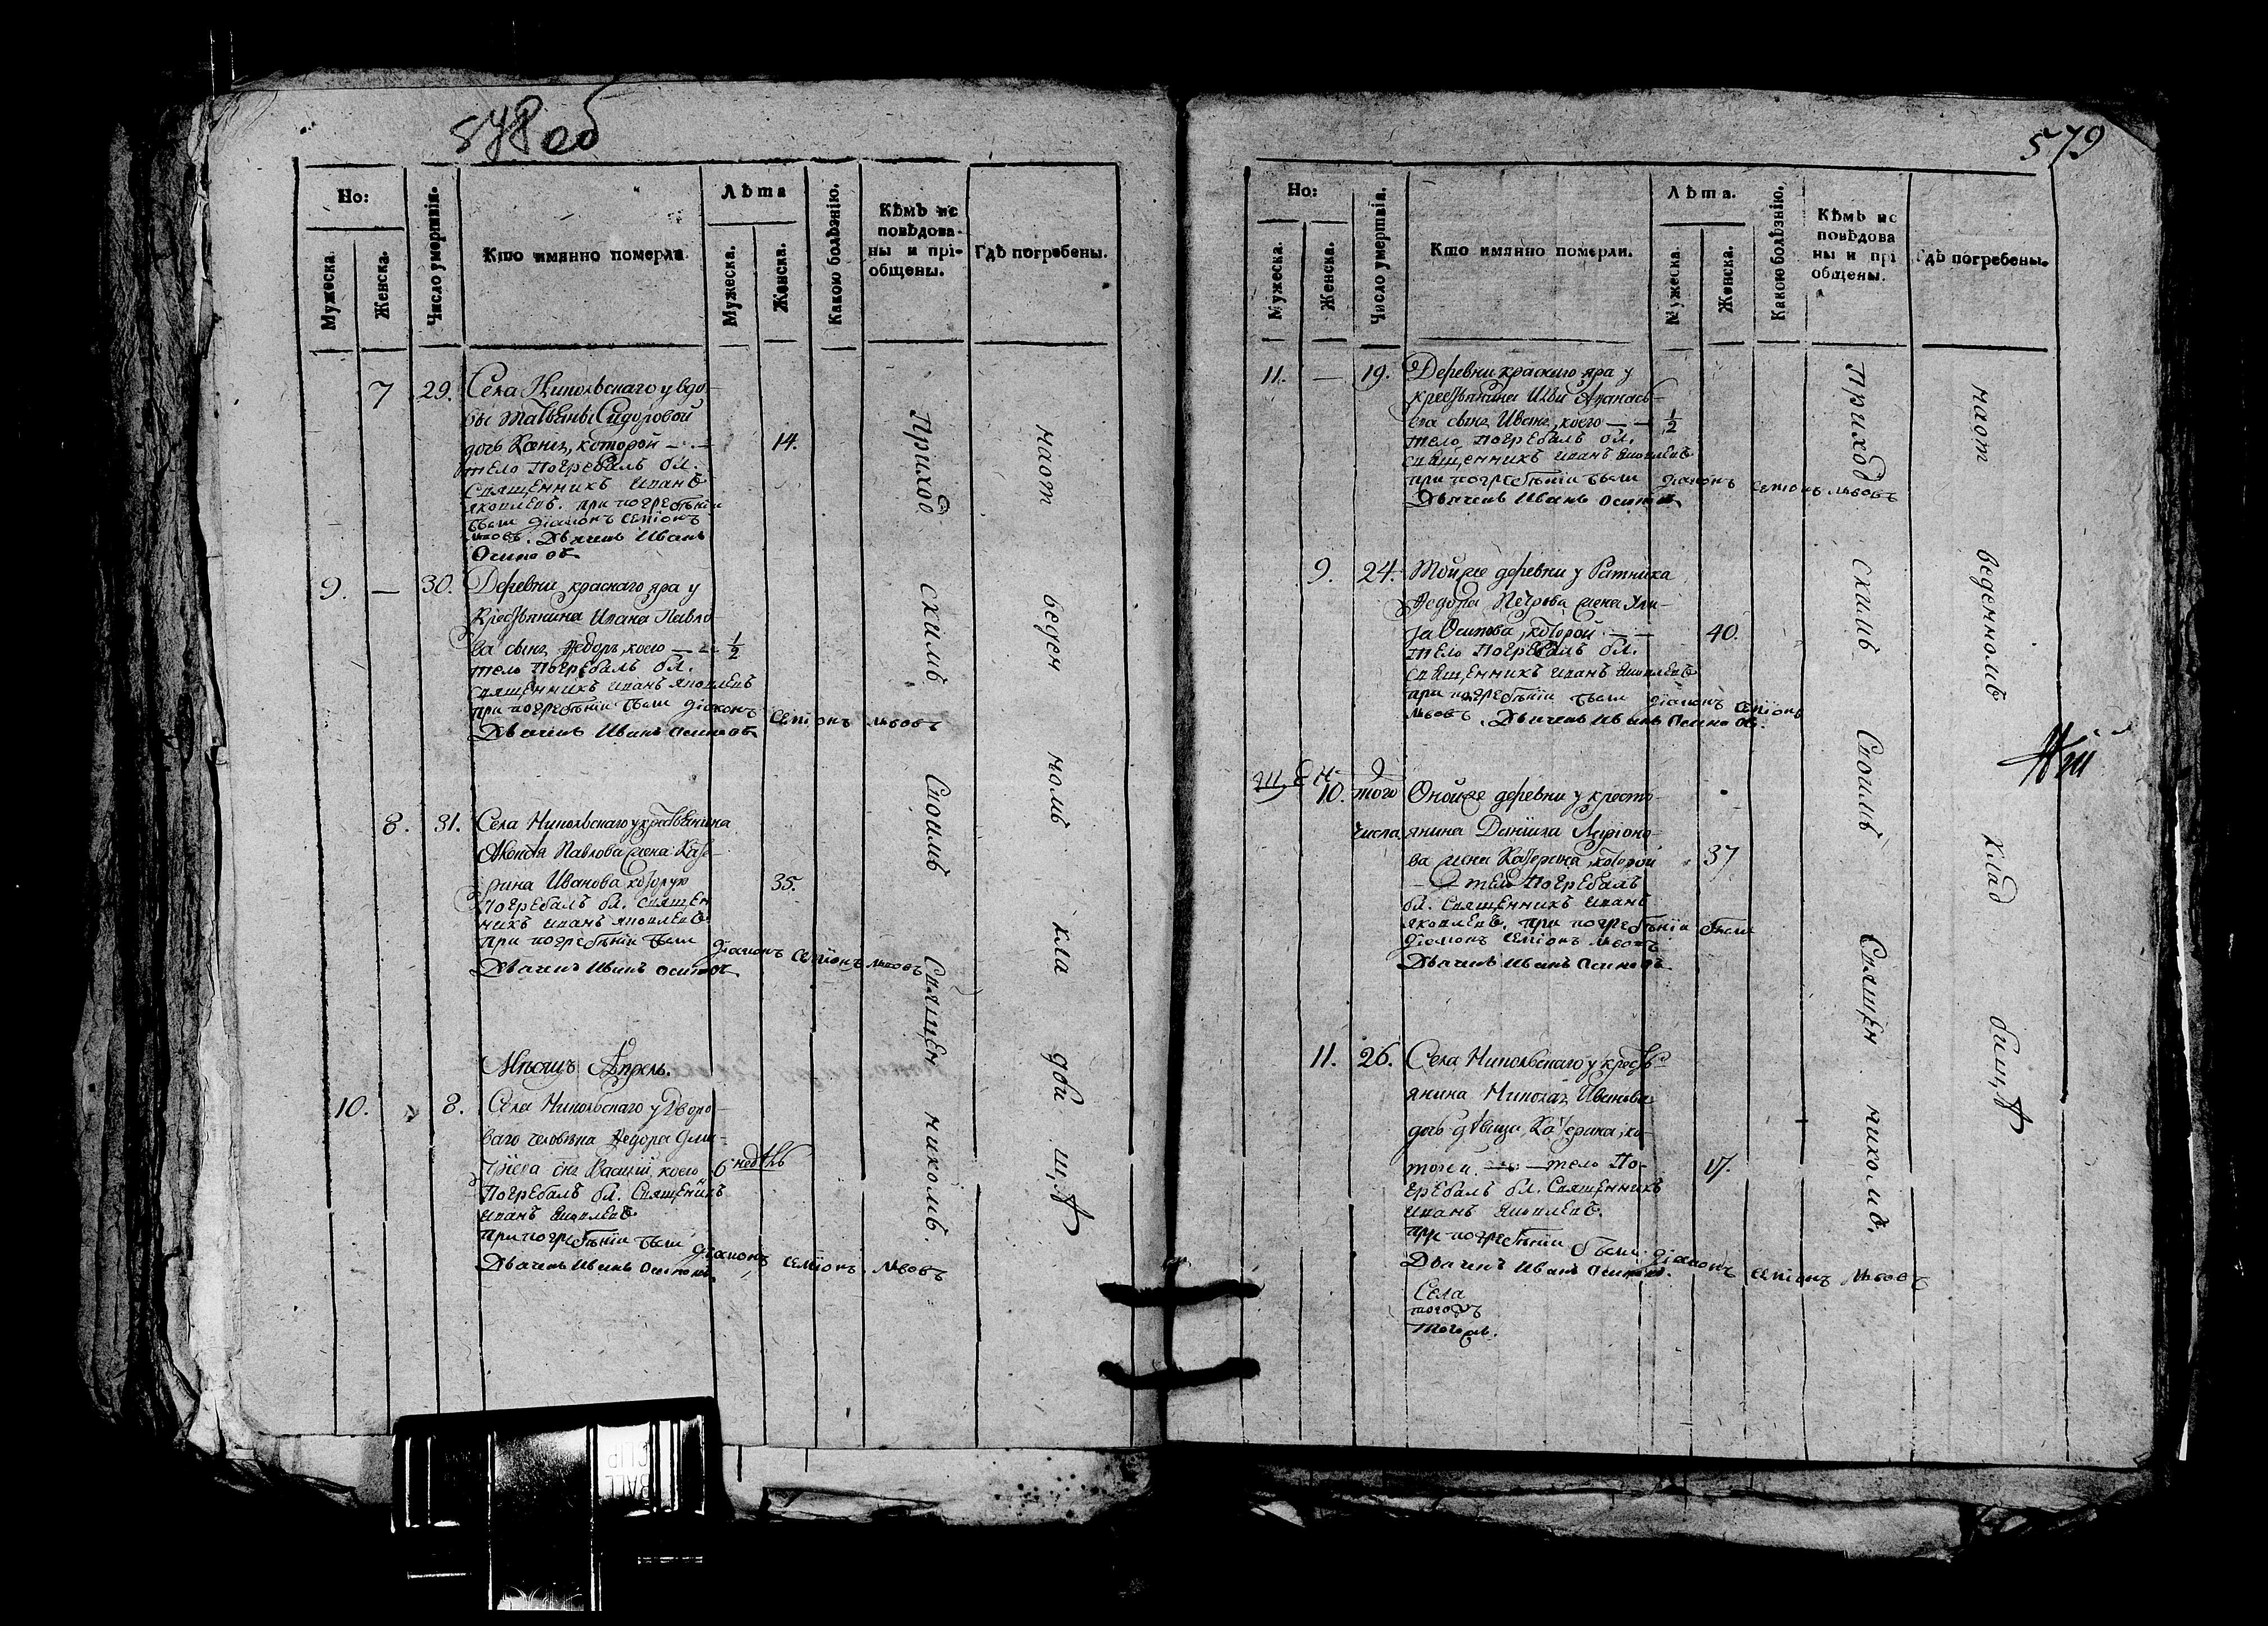 578 об
Но:
Мужеска.
Женска.
Число умертвія.
Кто имянно померли.
Лѣта
Мужеска.
Женска.
Какою болѣзнію.
Кѣмъ ис
повѣдова-
ны и прі-
общены.
Гдѣ погребены.
7 29. Села Никольскаго у вдо-
вы Татьяны Сидоровой
дочь Ксенія, которой — 14.
тело погребалъ бл.
священникъ Иванъ
Яковлевъ. при погребѣніи
были діаконъ Семіонъ
Львовъ. Дьячекъ Иванъ
Осиповъ
9. — 30. Деревни краснаго яра у
крестьянина Ивана Павло-
ва сынъ Федоръ, коего — 1/2
тело погребалъ бл.
священникъ Иванъ Яковлевъ
при погребѣніи были діаконъ Семіонъ Львовъ
Дьячекъ Иванъ Осиповъ
8. 31. Села Никольскаго у крестьянина
Павлова жена Кате-
рина Иванова которую 35.
погребалъ бл. священ
никъ Иванъ Яковлевъ
при погребѣніи были діаконъ Семіонъ Львовъ
Дьячекъ Иванъ Осиповъ
Мѣсяцъ Апрель.
10. 8. Села Никольскаго у Дворо-
ваго человѣка Федора Дми-
тріева сынъ Василій, коего 6 недѣль
Погребалъ бл. Священикъ
Иванъ Яковлевъ
при погребѣніи были діаконъ Семіонъ Львовъ
Дьячекъ Иванъ Осиповъ.
Приход скимъ Своимъ Священ никомъ.
на от веден номъ кла дби щѣ
579
Но:
Мужеска.
Женска.
Число умертвія.
Кто имянно померли.
Лѣта.
Мужеска.
Женска.
Какою болѣзнію.
Кѣмъ ис
повѣдова
ны и прі
общены.
Гдѣ погребены.
11. — 19. Деревни краснаго яра у
крестьянина Ильи Афанась-
ева сынъ Иванъ, коего — 1/2
тело погребалъ бл.
священникъ Иванъ Яковлевъ
при погребѣніи были діаконъ Семіонъ Львовъ
Дьячекъ Иванъ Осиповъ
9. 24. Той же деревни у Ратника
Федора Петрова жена Ули-
та Осипова, которой — 40.
тело погребалъ бл.
священникъ Иванъ Яковлевъ
при погребѣніи были діаконъ Семіонъ
Львовъ. Дьячекъ Иванъ Осиповъ.
10. того Оной же деревни у кресть-
числа янина Даніила Ларіоно-
ва жена Катерина, которой 37
— тело погребалъ
бл. Священникъ Иванъ
Яковлевъ. при погребѣніи были
діаконъ Семіонъ Львовъ
Дьячекъ Иванъ Осиповъ
11. 26. Села Никольскаго у кресть-
янина Николая Иванова
дочь дѣвица Катерина, ко-
торой — тело по- 17.
гребалъ бл. Священникъ
Иванъ Яковлевъ.
при погребѣніи были діаконъ Семіонъ Львовъ
Дьячекъ Иванъ Осиповъ.
Села
того
Приход скимъ Своимъ Священ никомъ.
на от веденномъ клад бищѣ